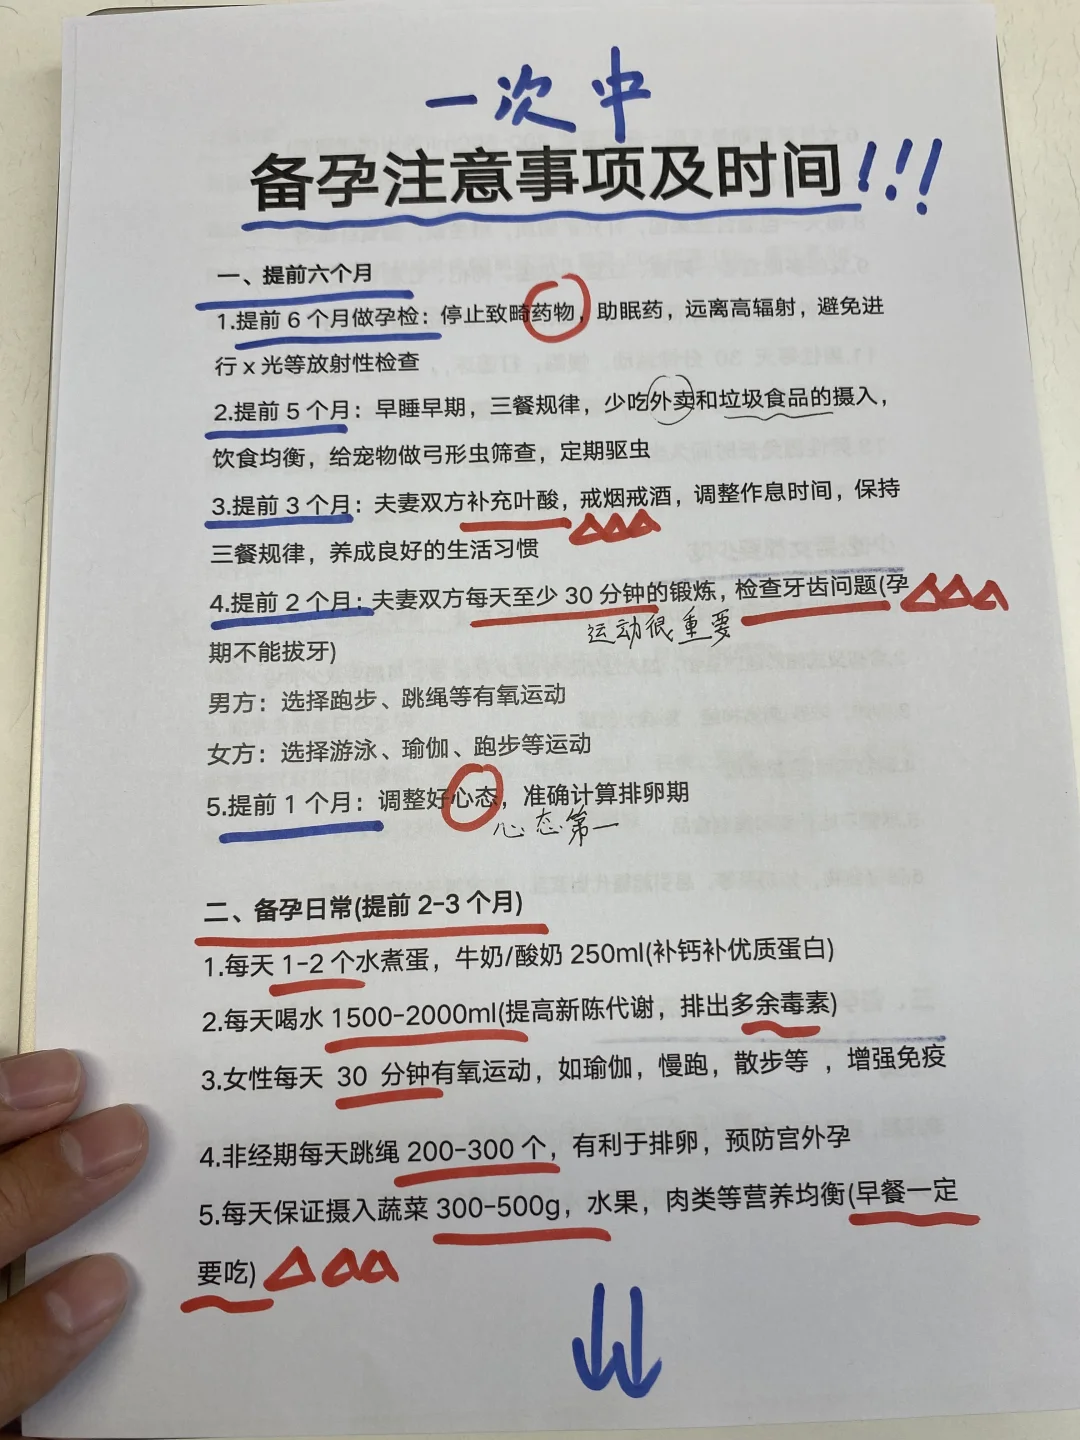 一次中
备孕注意事项及时间!!!
一、提前六个月
1.提前 6 个月做孕检：停止致畸药物，助眠药，远离高辐射，避免进
行 x 光等放射性检查
2.提前 5 个月：早睡早期，三餐规律，少吃外卖和垃圾食品的摄入，
饮食均衡，给宠物做弓形虫筛查，定期驱虫
3.提前 3 个月：夫妻双方补充叶酸，戒烟戒酒，调整作息时间，保持
三餐规律，养成良好的生活习惯
4.提前 2 个月：夫妻双方每天至少 30 分钟的锻炼，检查牙齿问题(孕
运动很重要
期不能拔牙)
男方：选择跑步、跳绳等有氧运动
女方：选择游泳、瑜伽、跑步等运动
5.提前 1 个月：调整好心态，准确计算排卵期
心态第一
二、备孕日常(提前 2-3 个月)
1.每天 1-2 个水煮蛋，牛奶/酸奶 250ml(补钙补优质蛋白)
2.每天喝水 1500-2000ml(提高新陈代谢，排出多余毒素)
3.女性每天 30 分钟有氧运动，如瑜伽，慢跑，散步等 ，增强免疫
4.非经期每天跳绳 200-300 个，有利于排卵，预防宫外孕
5.每天保证摄入蔬菜 300-500g，水果，肉类等营养均衡(早餐一定
要吃)